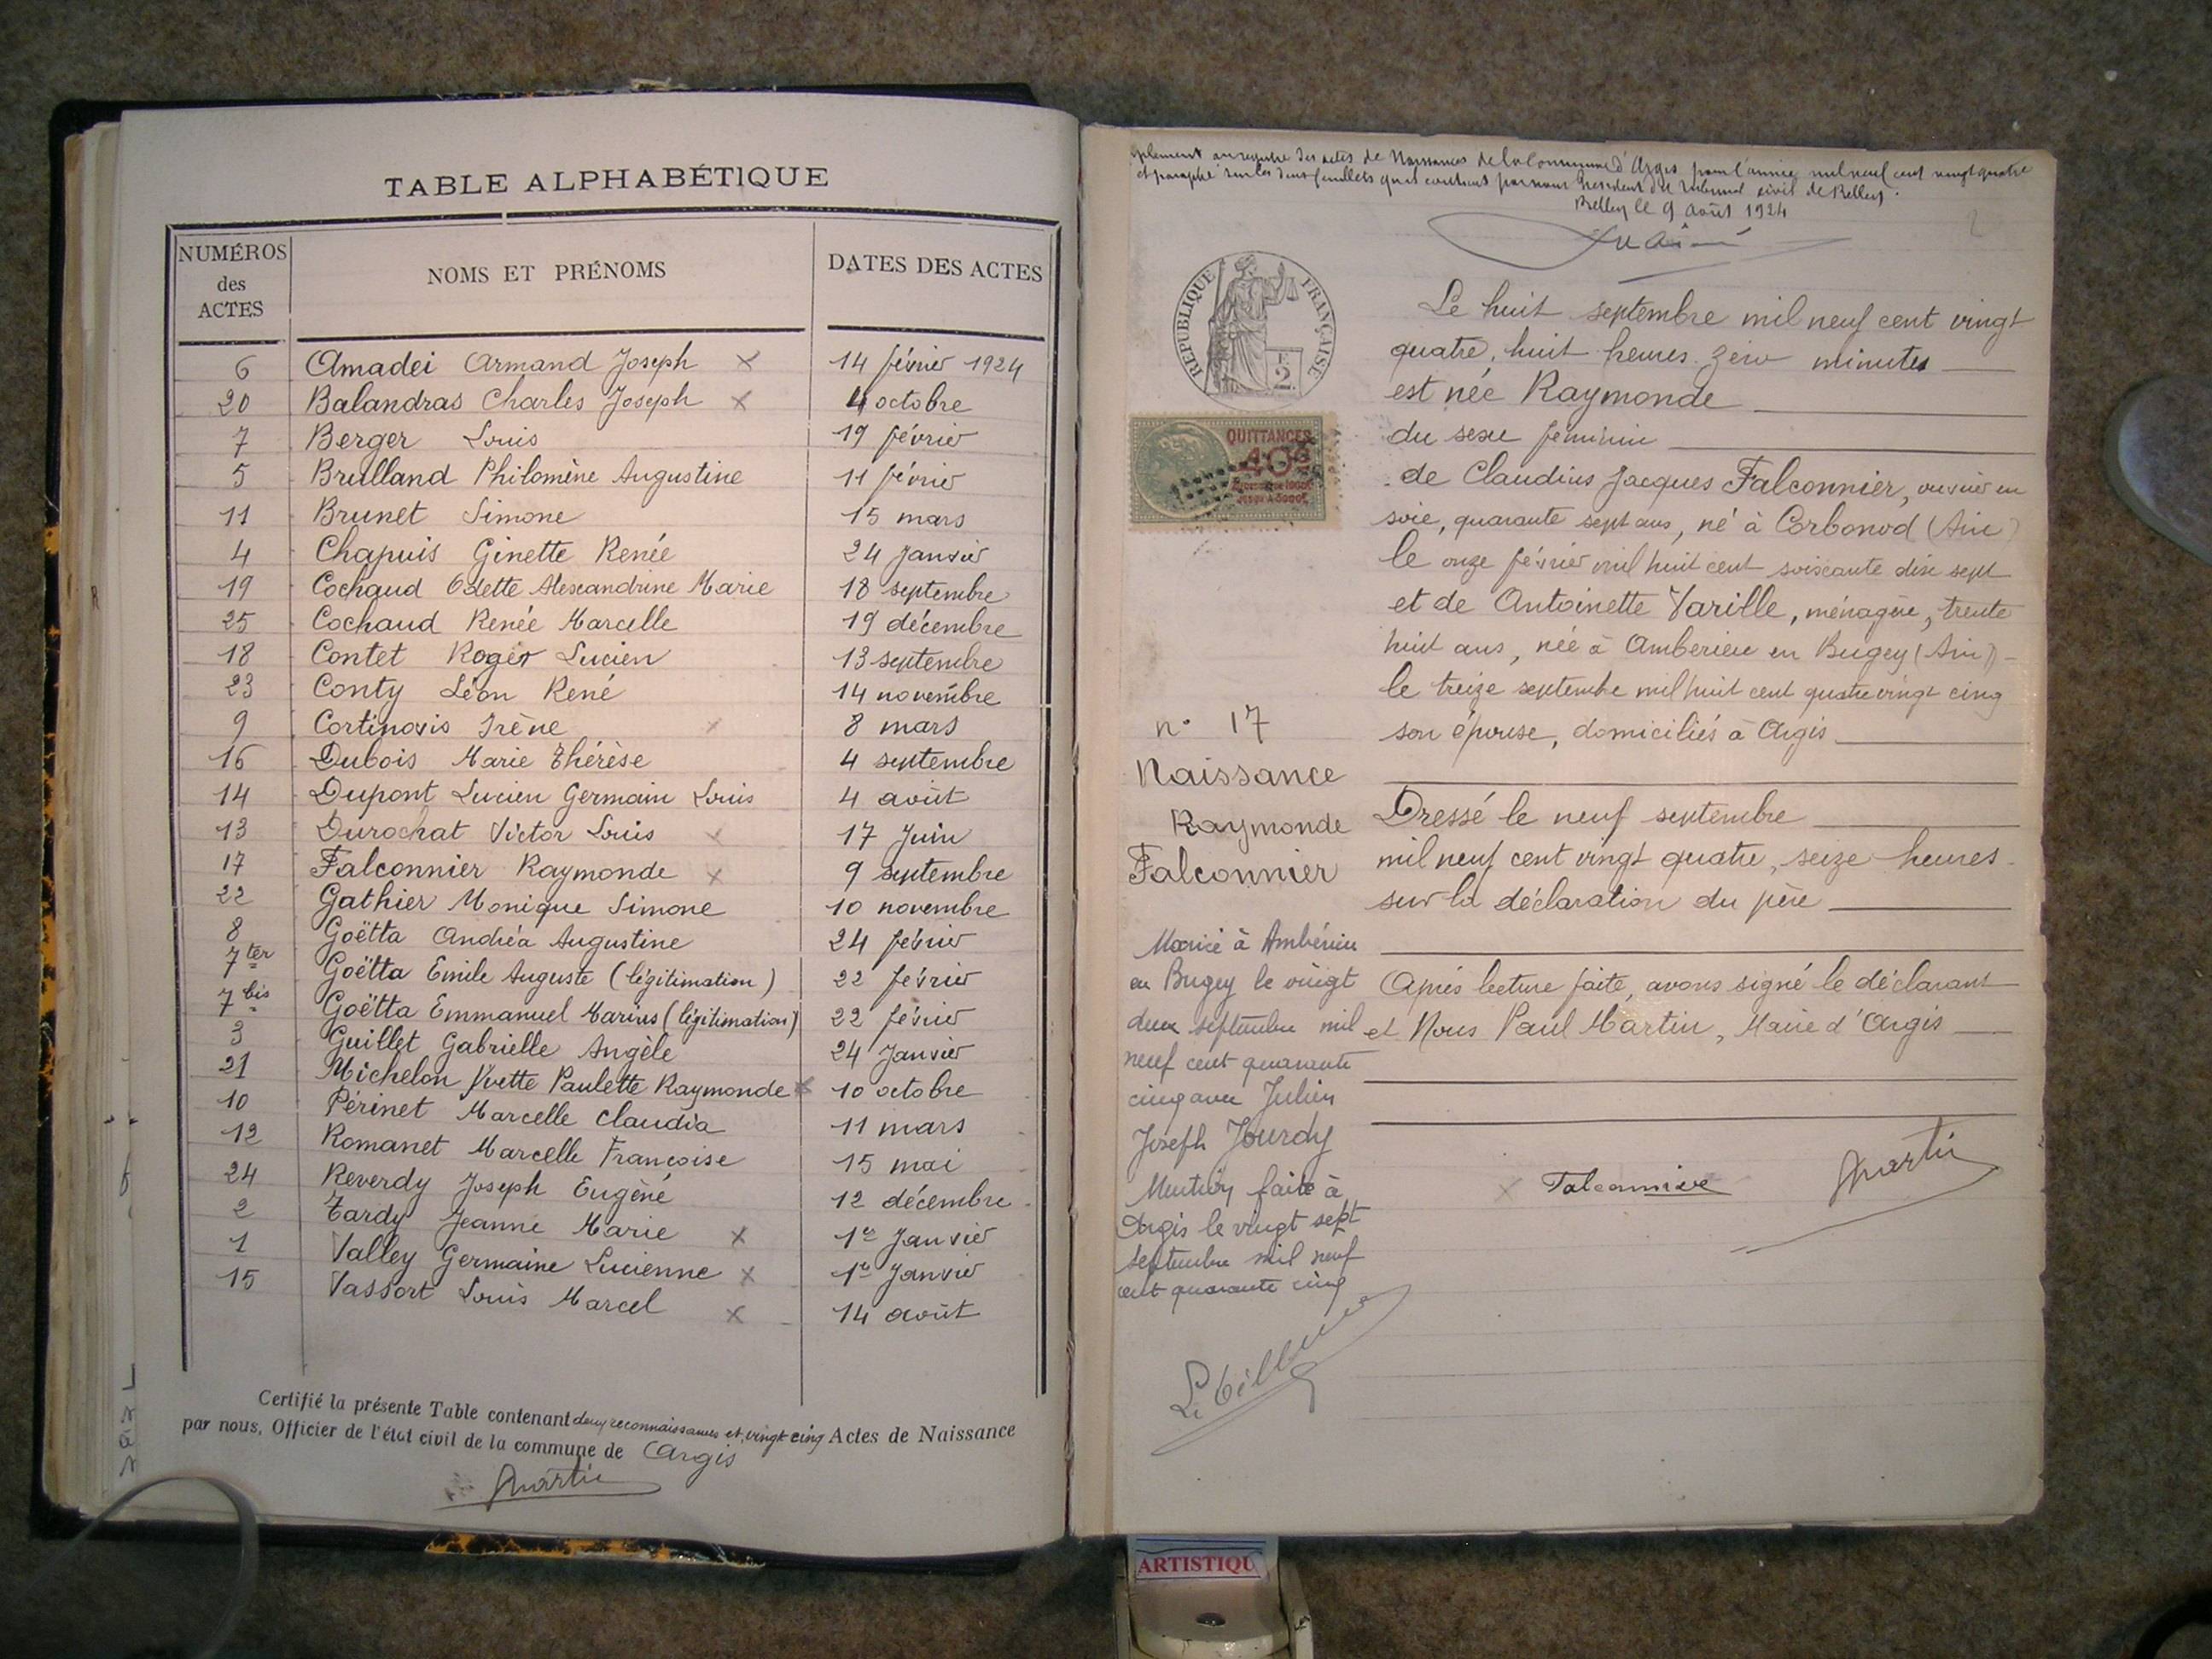 TABLE ALPHABÉTIQUE
NUMÉROS des ACTES NOMS ET PRÉNOMS DATES DES ACTES
6 Amadei Armand Joseph x 14 février 1924
20 Balandras Charles Joseph x 4 octobre
7 Berger Louis 19 février
5 Brulland Philomène Augustine 11 février
11 Brunet Simone 15 mars
4 Chapuis Ginette Renée 24 Janvier
19 Cochaud Odette Alexandrine Marie 18 septembre
25 Cochaud Renée Marcelle 19 décembre
18 Contet Roger Lucien 13 septembre
23 Conty Léon René 14 novembre
9 Cortinovis Irène x 8 mars
16 Dubois Marie Thérèse 4 septembre
14 Dupont Lucien Germain Louis 4 août
13 Durochat Victor Louis x 17 Juin
17 Falconnier Raymonde x 9 septembre
22 Gathier Monique Simone 10 novembre
8 Goëtta Andréa Augustine 24 février
7 ter Goëtta Emile Auguste (légitimation) 22 février
7 bis Goëtta Emmanuel Marius (légitimation) 22 février
3 Guillet Gabrielle Angèle 24 Janvier
21 Michelon Yvette Paulette Raymonde x 10 octobre
10 Périnet Marcelle Claudia 11 mars
12 Romanet Marcelle Françoise 15 mai
24 Reverdy Joseph Eugène 12 décembre
2 Tardy Jeanne Marie x 1er Janvier
1 Valley Germaine Lucienne x 1er Janvier
15 Vassort Louis Marcel x 14 août
Certifié la présente Table contenant deux reconnaissances et vingt cinq Actes de Naissance
par nous, Officier de l'état civil de la commune de Argis
Martin
au registre des actes de Naissances de la Commune d'Argis pour l'année mil neuf cent vingt quatre
et paraphé sur les deux feuillets qu'il contient par nous Président du Tribunal civil de Belley.
Belley le 9 août 1924
RÉPUBLIQUE FRANÇAISE
F. 2.
QUITTANCES
40c
Le huit septembre mil neuf cent vingt
quatre, huit heures zéro minutes
est née Raymonde
du sexe féminin
de Claudius Jacques Falconnier, ouvrier en
soie, quarante sept ans, né à Corbonod (Ain)
le onze février mil huit cent soixante dix sept
et de Antoinette Varille, ménagère, trente
huit ans, née à Amberieu en Bugey (Ain)
le treize septembre mil huit cent quatre vingt cinq
son épouse, domiciliés à Argis
Dressé le neuf septembre
mil neuf cent vingt quatre, seize heures
sur la déclaration du père
Après lecture faite, avons signé le déclarant
et Nous Paul Martin, Maire d'Argis
Falconnier
Martin
n° 17
Naissance
Raymonde
Falconnier
Mariée à Ambérieu
en Bugey le vingt
deux septembre mil
neuf cent quarante
cinq avec Julien
Joseph Jourdy
Mention faite à
Argis le vingt sept
septembre mil neuf
cent quarante cinq
ARTISTIQU